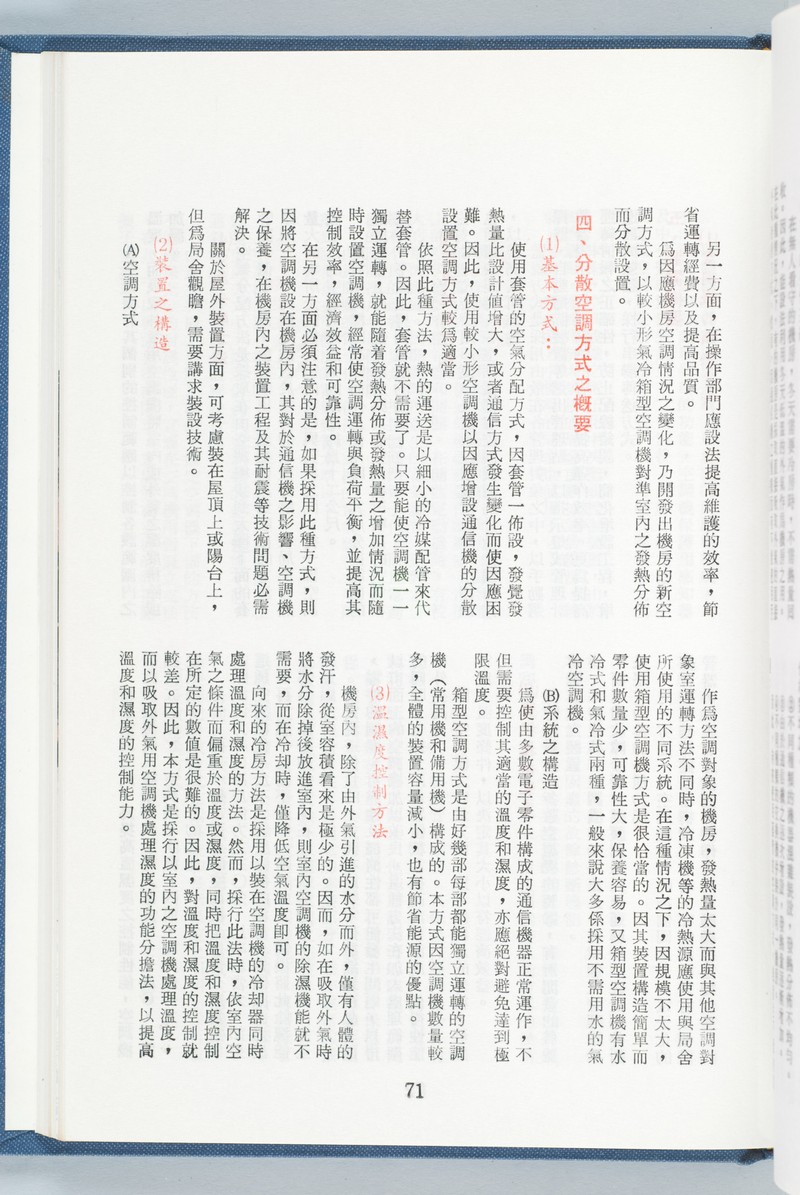 另一方面，在操作部門應設法提高維護的效率，節
省運轉經費以及提高品質。
爲因應機房空調情況之變化，乃開發出機房的新空
調方式，以較小形氣冷箱型空調機對準室內之發熱分佈
而分散設置。
四、分散空調方式之概要
(1)基本方式：
使用套管的空氣分配方式，因套管一佈設，發覺發
熱量比設計値增大，或者通信方式發生變化而使因應困
難。因此，使用較小形空調機以因應增設通信機的分散
設置空調方式較爲適當。
依照此種方法，熱的運送是以細小的冷媒配管來代
替套管。因此，套管就不需要了。只要能使空調機一一
獨立運轉，就能隨着發熱分佈或發熱量之增加情況而隨
時設置空調機，經常使空調運轉與負荷平衡，並提高其
控制效率，經濟效益和可靠性。
在另一方面必須注意的是，如果採用此種方式，則
因將空調機設在機房內，其對於通信機之影響、空調機
之保養，在機房內之裝置工程及其耐震等技術問題必需
解決。
關於屋外裝置方面，可考慮裝在屋頂上或陽台上，
但爲局舍觀瞻，需要講求裝設技術。
(2)裝置之構造
(A)空調方式
作爲空調對象的機房，發熱量太大而與其他空調對
象室運轉方法不同時，冷凍機等的冷熱源應使用與局舍
所使用的不同系統。在這種情況之下，因規模不太大，
使用箱型空調機方式是很恰當的。因其裝置構造簡單而
零件數量少，可靠性大，保養容易，又箱型空調機有水
冷式和氣冷式兩種，一般來說大多係採用不需用水的氣
冷空調機。
(B)系統之構造
爲使由多數電子零件構成的通信機器正常運作，不
但需要控制其適當的溫度和濕度，亦應絕對避免達到極
限溫度。
箱型空調方式是由好幾部每部都能獨立運轉的空調
機（常用機和備用機）構成的。本方式因空調機數量較
多，全體的裝置容量減小，也有節省能源的優點。
(3)溫濕度控制方法
機房內，除了由外氣引進的水分而外，僅有人體的
發汗，從室容積看來是極少的。因而，如在吸取外氣時
將水分除掉後放進室內，則室內空調機的除濕機能就不
需要，而在冷却時，僅降低空氣溫度卽可。
向來的冷房方法是採用以裝在空調機的冷却器同時
處理溫度和濕度的方法。然而，採行此法時，依室內空
氣之條件而偏重於溫度或濕度，同時把溫度和濕度控制
在所定的數値是很難的。因此，對溫度和濕度的控制就
較差。因此，本方式是採行以室內之空調機處理溫度，
而以吸取外氣用空調機處理濕度的功能分擔法，以提高
溫度和濕度的控制能力。
71